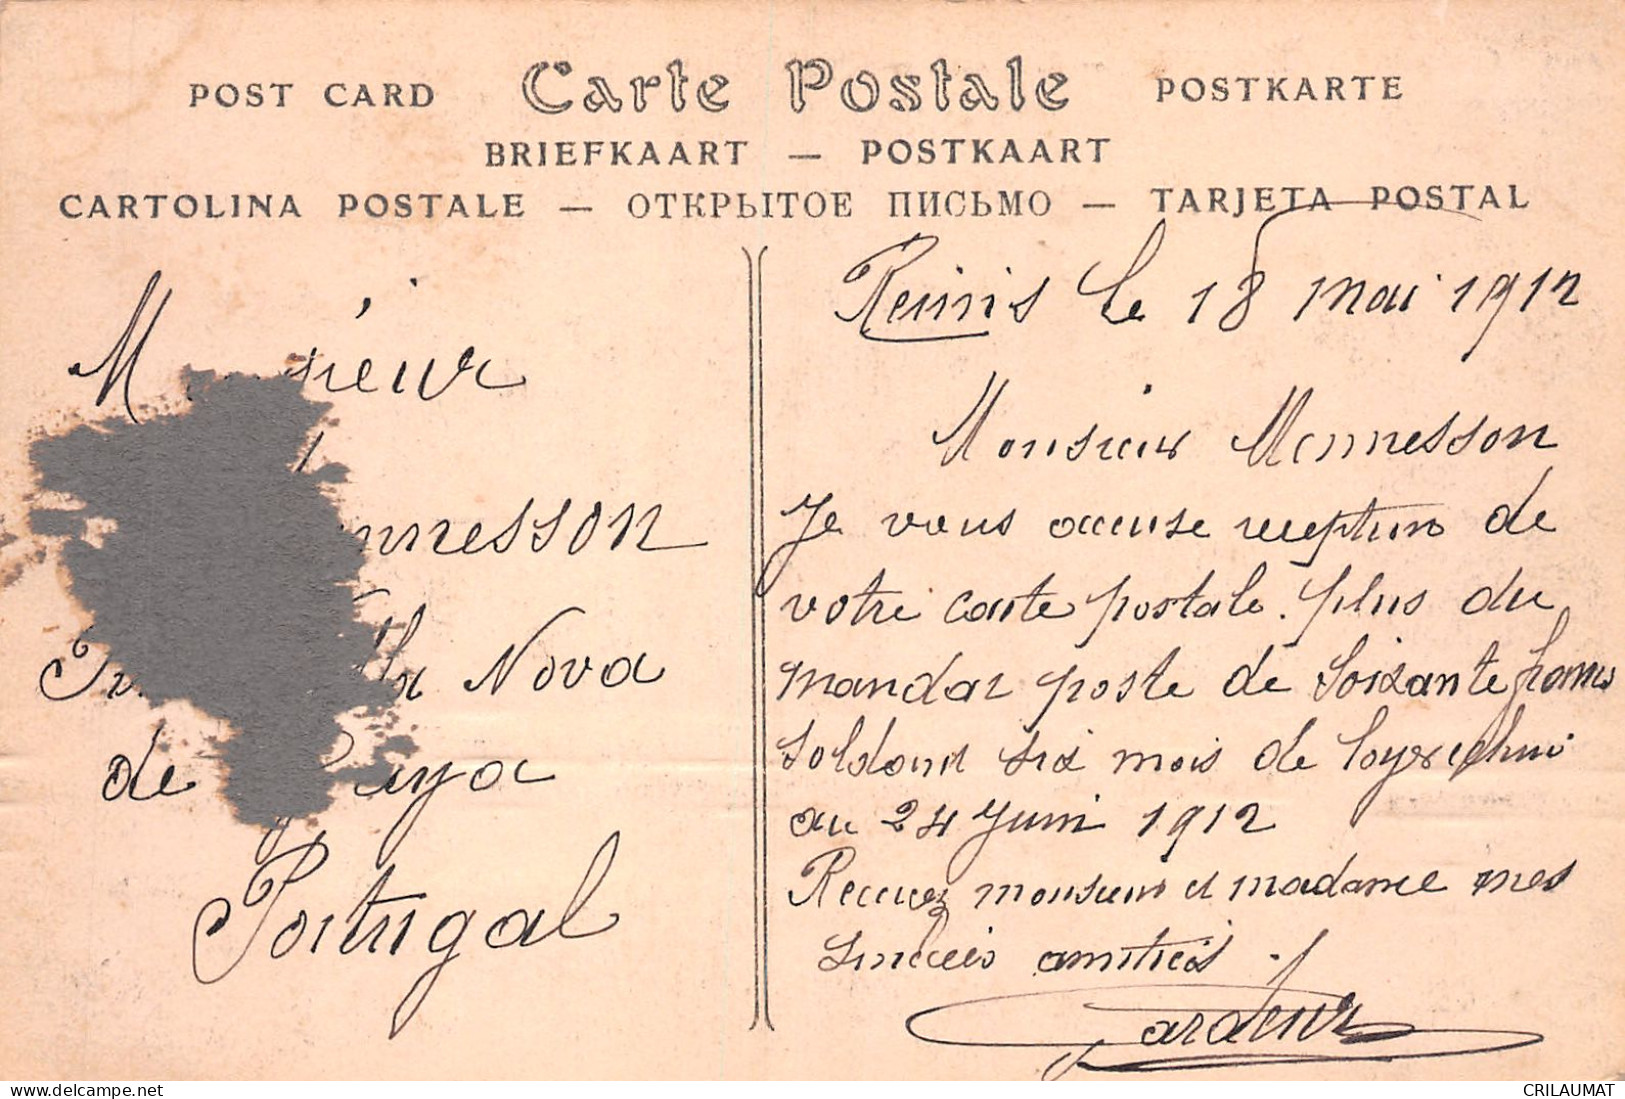 POST CARD Carte Postale POSTKARTE
BRIEFKAART — POSTKAART
CARTOLINA POSTALE — ОТКРЫТОЕ ПИСЬМО — TARJETA POSTAL
Monsieur
nnesson
Nova
de
Portugal
Reims le 18 mai 1912
Monsieur Mennesson
Je vous accuse reception de
votre carte postale. plus du
mandat poste de Soixante francs
Soldant six mois de loyer echui
au 24 Juin 1912
Recevez monsieur et madame mes
Sinceres amities.